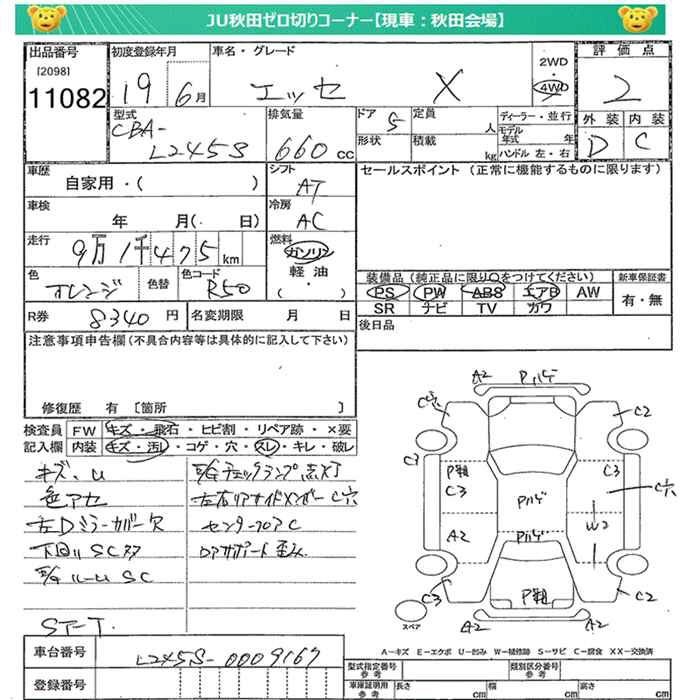 JU秋田ゼロ切りコーナー【現車：秋田会場】
出品番号
[2098]
11082
初度登録年月
19 6月
車名・グレード
エッセ X
2WD
・
4WD
評価点
2
型式
CBA-
L245S
排気量
660 cc
ドア 5
形状
定員 人
積載 kg
ディーラー・並行
モデル年式 年
ハンドル 左・右
外装 内装
D C
車歴
自家用・( )
シフト
AT
セールスポイント (正常に機能するものに限ります)
車検
年 月( 日)
冷房
AC
走行
9万1千475km
燃料
ガソリン
軽油
( )
色
オレンジ
色替
色コード
R50
装備品 (純正品に限り○をつけてください)
PS PW ABS エアB AW
SR ナビ TV カワ
新車保証書
有・無
R券 8340 円
名変期限 月 日
後日品
注意事項申告欄 (不具合内容等は具体的に記入して下さい)
修復歴 有 〔箇所 〕
検査員記入欄
FW キズ・飛石・ヒビ割・リペア跡・×要
内装 キズ・汚レ・コゲ・穴・スレ・キレ・破レ
キズ、U
色アセ
左Dミラーカバー欠
下回りSC
ルームSC
ST-T.
チェックランプ点灯
左右リアサイドメンバーC穴
センターフロアC
歪み
A2 Pハゲ
C穴
C2
C3
C3
C3
C穴
A2
W2
Pハゲ
Pハゲ
C3
C2
スペア
A2
A2
A-キズ E-エクボ U-凹み W-補修跡 S-サビ C-腐食 XX-交換済
車台番号
L245S-0009167
登録番号
型式指定番号
参考
類別区分番号
参考
車庫証明用
参考
長さ cm
幅 cm
高さ cm